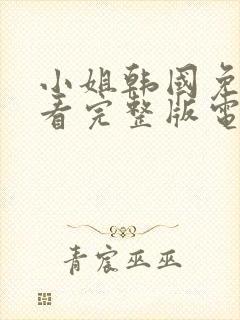 小姐韩国免
看完整版電
青宸巫巫